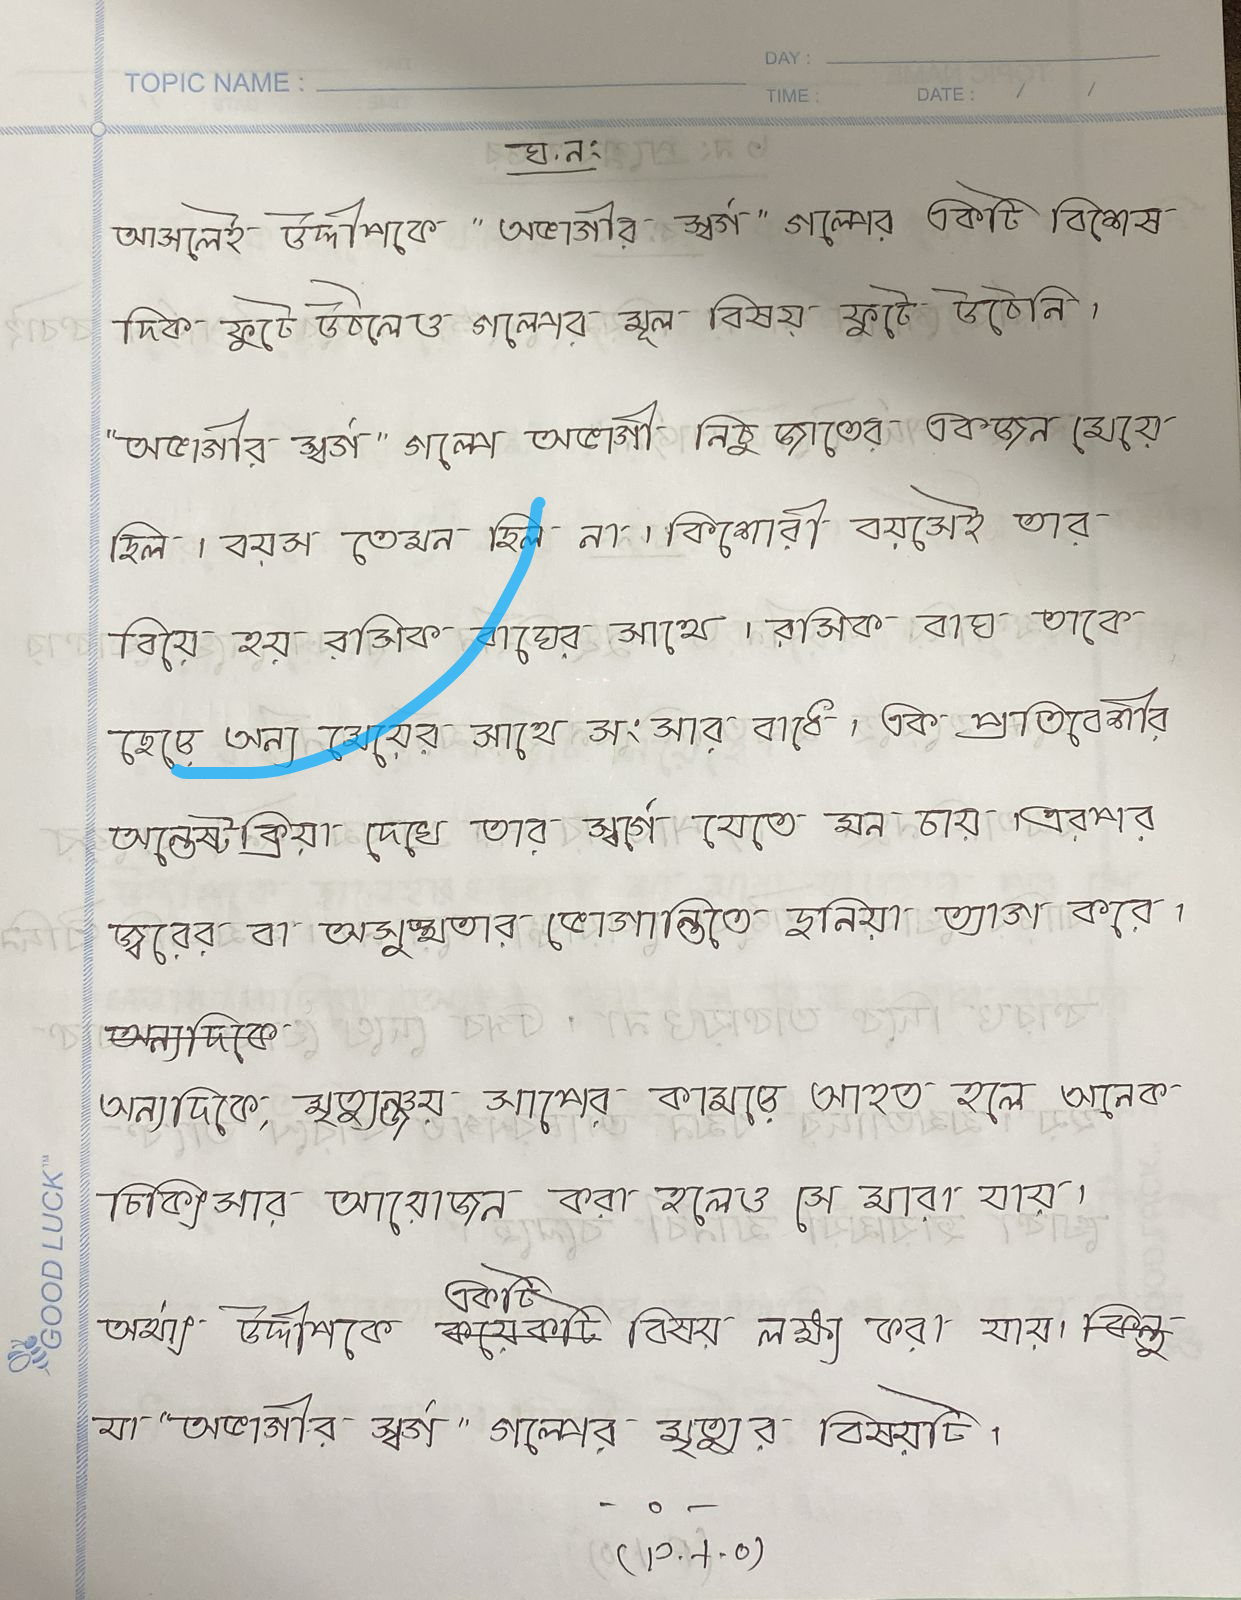 TOPIC NAME :
DAY :
TIME :
DATE : / /
ঘ. নং
আসলেই উদ্দীপকে "অভাগীর স্বর্গ" গল্পের একটি বিশেষ
দিক ফুটে উঠলেও গল্পের মূল বিষয় ফুটে উঠেনি।
"অভাগীর স্বর্গ" গল্পে অভাগী নিচু জাতের একজন মেয়ে
ছিল। বয়স তেমন ছিল না। কিশোরী বয়সেই তার
বিয়ে হয় রসিক বাঘের সাথে। রসিক বাঘ তাকে
ছেড়ে অন্য মেয়ের সাথে সংসার বাধে। এক প্রতিবেশীর
অন্তেষ্টক্রিয়া দেখে তার স্বর্গে যেতে মন চায়। এরপর
জ্বরের বা অসুস্থতার ভোগান্তিতে দুনিয়া ত্যাগ করে।
অন্যদিকে
অন্যদিকে, মৃত্যুঞ্জয় সাপের কামড়ে আহত হলে অনেক
চিকিৎসার আয়োজন করা হলেও সে মারা যায়।
একটি
অর্থাৎ উদ্দীপকে কয়েকটি বিষয় লক্ষ্য করা যায়। কিন্তু
যা "অভাগীর স্বর্গ" গল্পের মৃত্যুর বিষয়টি।
- o -
(P.T.O)
GOOD LUCK™